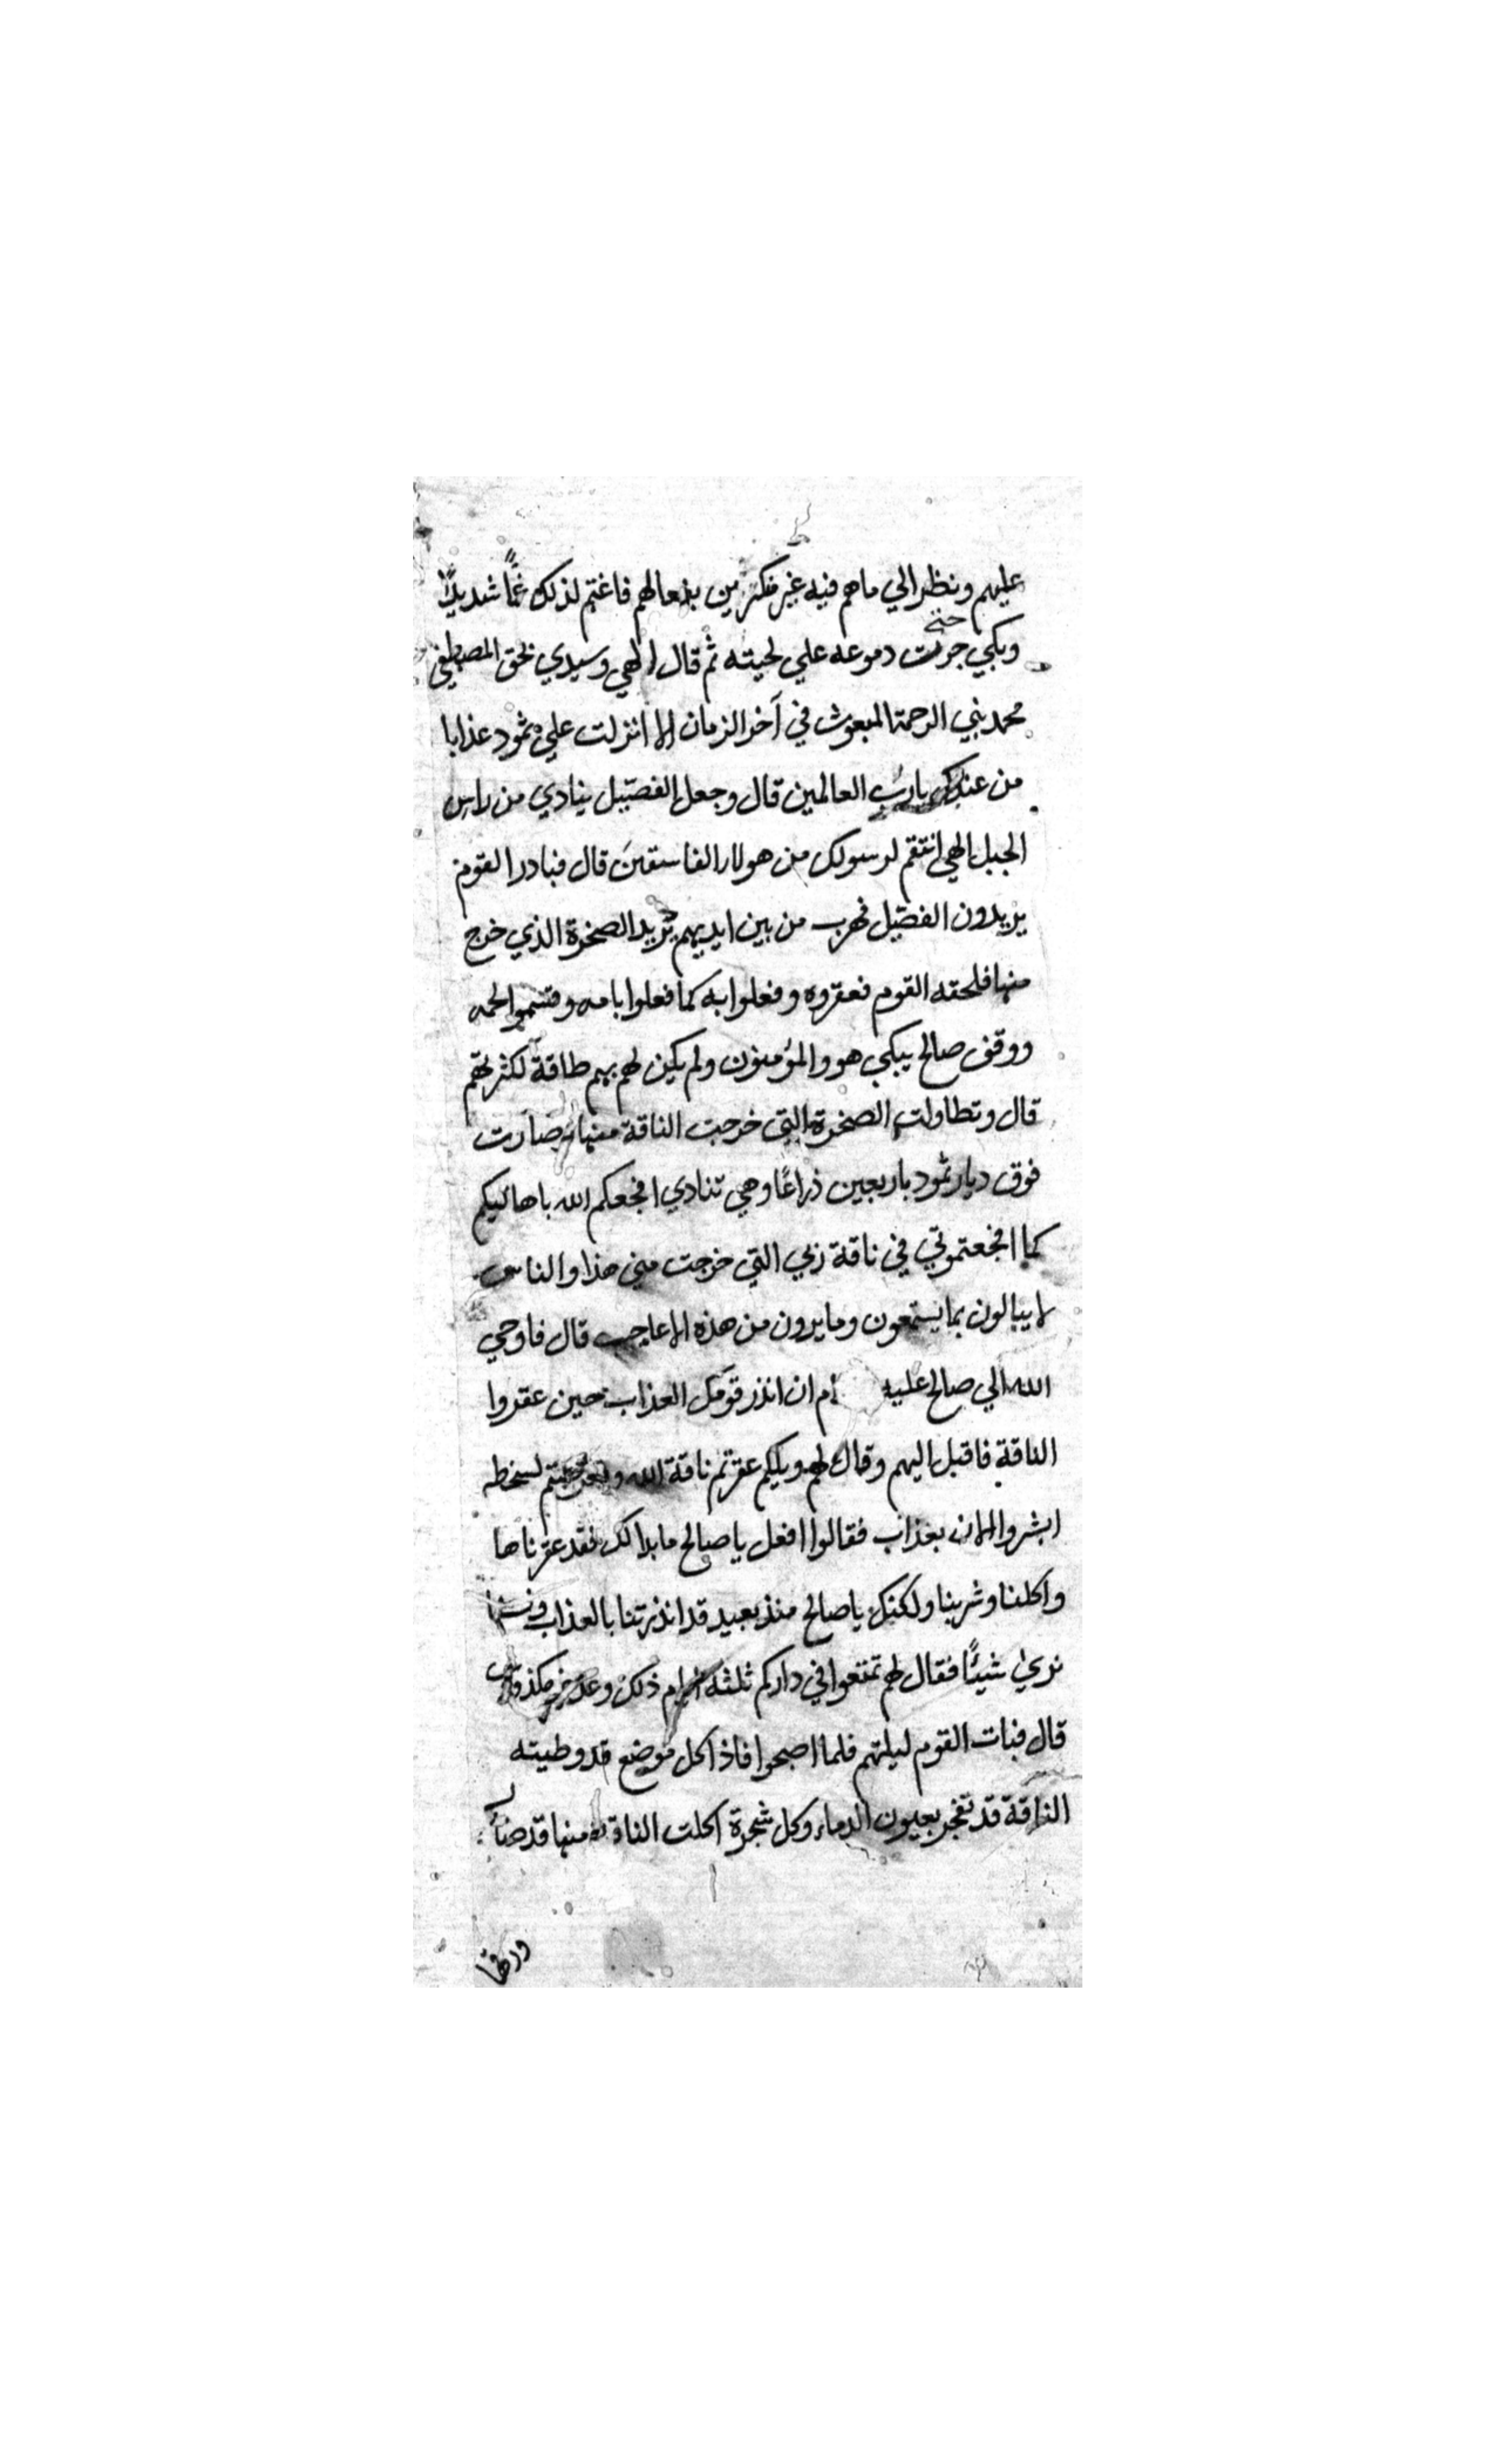 عليهم ونظر الي ماهم فيه غير مفكرين بفعالهم فاغتم لذلك غمًّا شديدًا
وبكي حتي جرت دموعه علي لحيته ثم قال الهي وسيدي بحق المصطفي
محمد نبي الرحمة المبعوث في آخر الزمان الا انزلت علي ثمود عذابا
من عندك يارب العالمين قال وجعل الفصيل ينادي من راس
الجبل الهي انتقم لرسولك من هولاء الفاسقين قال فبادر القوم
يريدون الفصيل فهرب من بين ايديهم يريد الصخرة الذي خرج
منها فلحقه القوم فعقروه وفعلوا به كما فعلوا بامه وقسموا لحمه
ووقف صالح يبكي هو والمؤمنون ولم يكن لهم بهم طاقة لكثرتهم
قال وتطاولت الصخرة التي خرجت الناقة منها وصارت
فوق ديار ثمود باربعين ذراعًا وهي تنادي افجعكم الله باهاليكم
كما افجعتموني في ناقة ربي التي خرجت مني هذا والناس
لا يبالون بما يستمعون وما يرون من هذه الاعاجيب قال فاوحي
الله الي صالح عليه ام ان انذر قومك العذاب حين عقروا
الناقة فاقبل اليهم وقال لهم ويلكم عقرتم ناقة الله لسخطه
ابشروا الان بعذاب فقالوا افعل يا صالح ما بدا لك فقد عقرناها
واكلنا وشربنا ولكنك يا صالح منذ بعيد قد انذرتنا بالعذاب
نري شيئًا فقال لهم تمتعوا في داركم ثلثة ايام ذلك وعد غير مكذوب
قال فبات القوم ليلتهم فلما اصبحوا فاذا كل موضع قد وطيته
الناقة قد تفجر بعيون الدماء وكل شجرة اكلت الناقة منها قد صار
ورقها